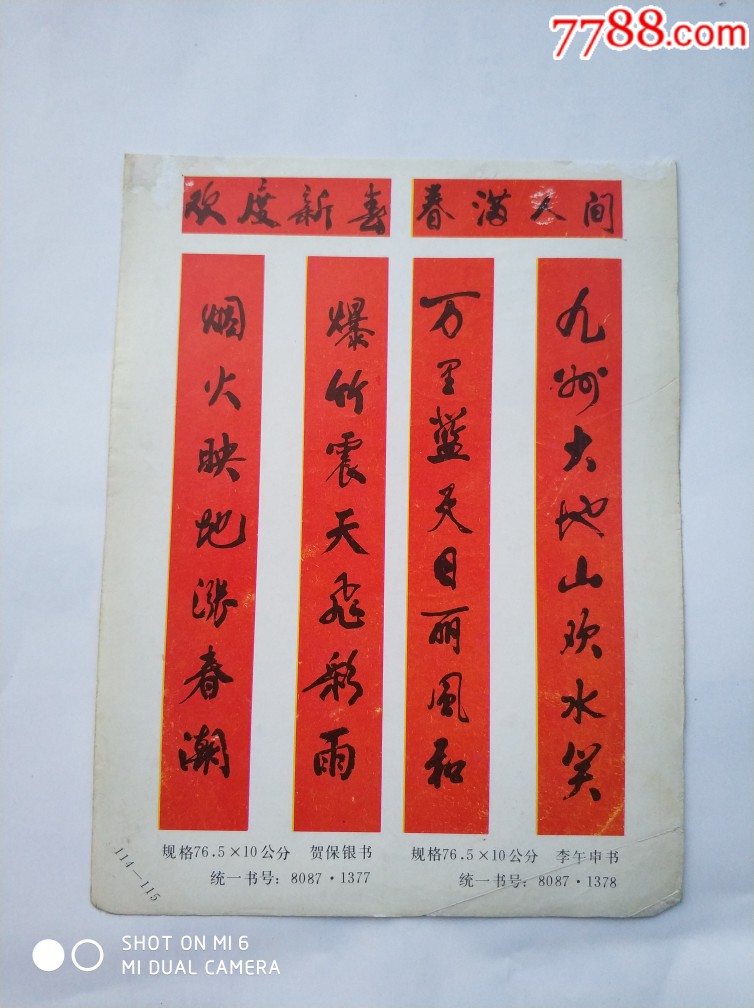 7788.com
欢度新春
春满人间
烟火映地涨春潮
爆竹震天飞彩雨
万里蓝天日丽风和
九州大地山欢水笑
规格76.5×10公分 贺保银书
统一书号：8087·1377
规格76.5×10公分 李午申书
统一书号：8087·1378
114—115
SHOT ON MI 6
MI DUAL CAMERA